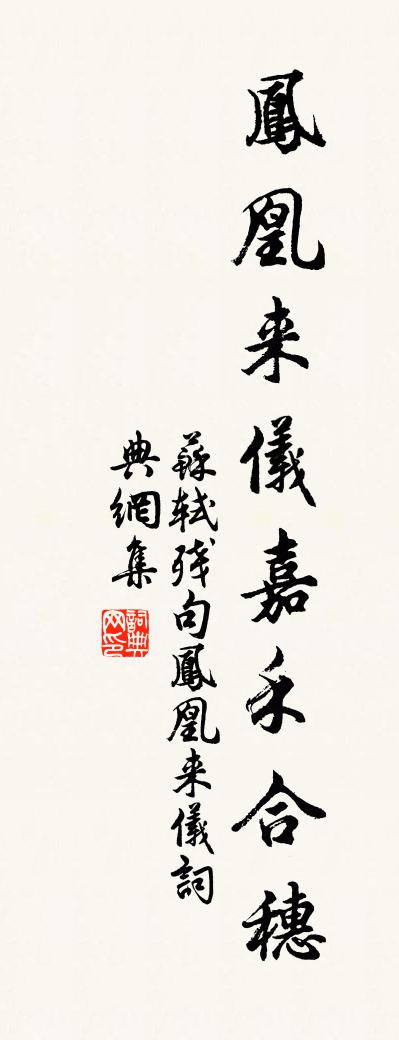 鳳凰来儀嘉禾合穗
蘇軾残句鳳凰来儀詞
典網集
詞典网印